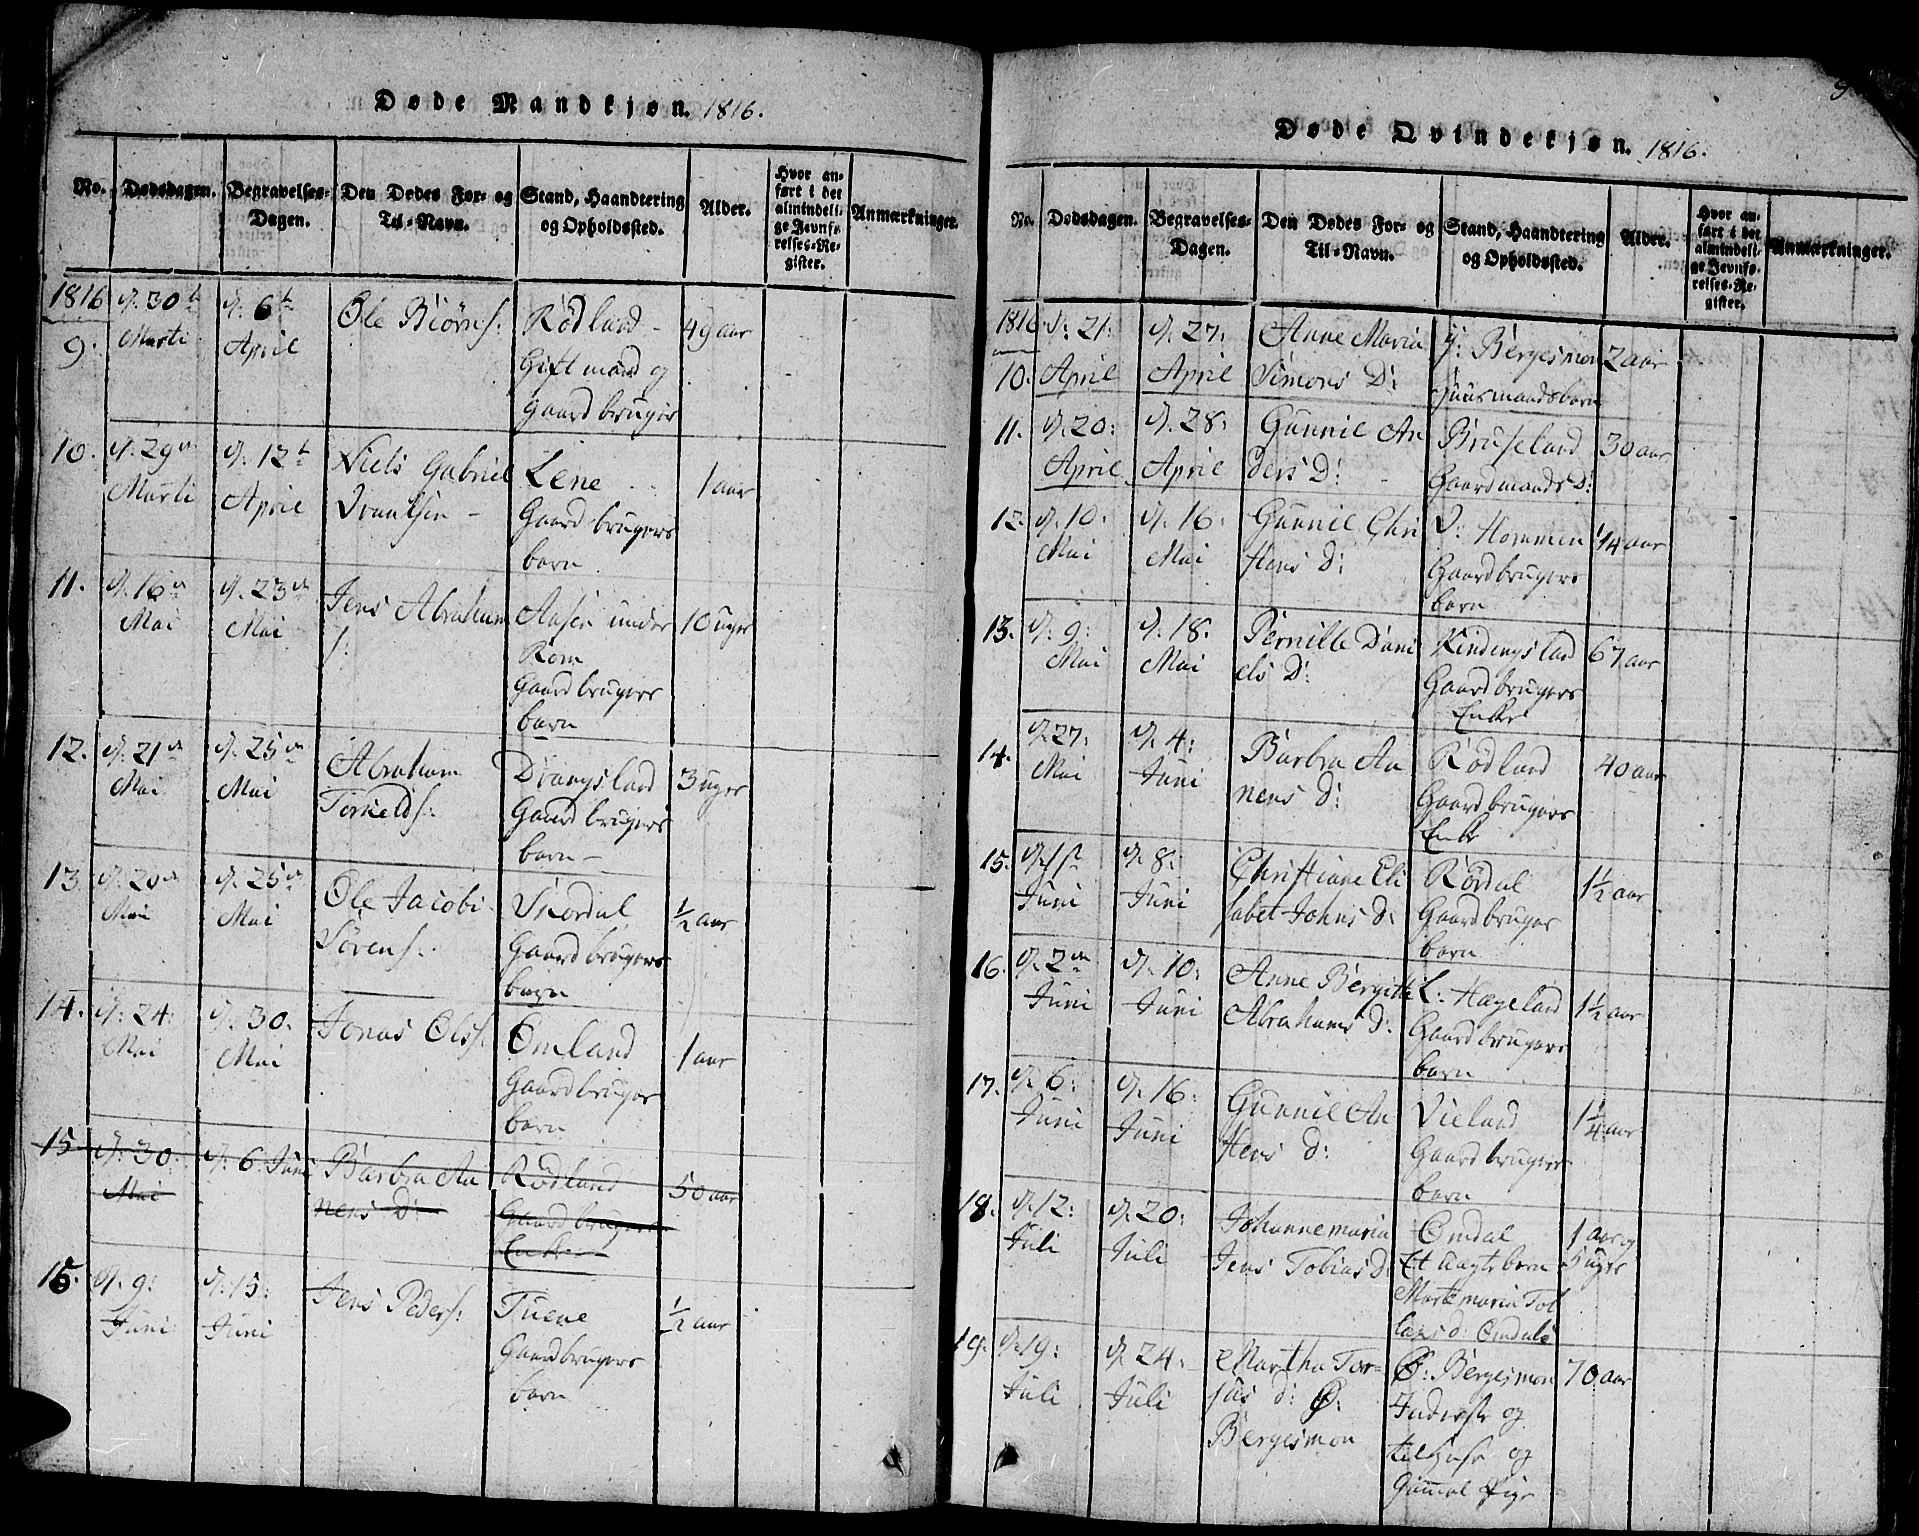 Døde Mandkjøn. 1816.
No. Dødsdagen. Begravelses-Dagen. Den Dødes For- og Til-Navn. Stand, Haandtering og Opholdssted. Alder. Hvor anført i det almindelige Jevnførelses-Register. Anmærkninger.
1816
9. d. 30t Marti d. 6t April Ole Biørns: Rødland - Gift mand og gaardbruger 49 aar
10. d. 29n Marti d. 12t April Niels Gabriel Lene Gaardbrugers barn 1 aar
11. d. 16n Mai d. 23n Mai Jens Abraham s: Aasen under Rom Gaardbrugers barn 10 uger
12. d. 21n Mai d. 25n Mai Abraham Torkelds: Drangsland Gaardbrugers barn - 3 uger
13. d. 20n Mai d. 25n Mai Ole Jacob Sørens: Skordal Gaardbrugers barn ½ aar
14. d: 24: Mai d. 30. Mai Jonas Ols: Omland Gaardbruger barn 1 aar
15 d: 30: Mai d. 6. Juni Barbra Anens D: Rødland Gaardbrugers Enke 50 aar
15. d. 9: Juni d. 15: Juni Jens Peders: Tuene Gaardbrugers barn ½ aar
Døde Qvindekjøn. 1816.
No. Dødsdagen. Begravelses-Dagen. Den Dødes For- og Til-Navn. Stand, Haandtering og Opholdssted. Alder. Hvor anført i det almindelige Jevnførelses-Register. Anmærkninger.
1816
10. d: 21: April d. 27: April Anne Maria Simons D: Y: Bergesmon Huusmandsbarn 2 aar
11. d. 20: April d. 28: April Gunnil Anders D: Bruseland Gaardmands D: 30 aar
12. d. 10: Mai d. 16: Mai Gunnil Christens d: Hommen Gaardbrugers barn 14 aar
13. d. 9: Mai d. 18. Mai Pernille Daniels D: Kindingsland Gaardbrugers Enke 67 aar
14. d. 27: Mai d. 4: Juni Barbra Anens d: Rødland Gaardbrugers Enke 40 aar
15. d. 1st Juni d. 8: Juni Christiane Elisabet Johns d: Rørdal Gaardbruger barn 1½ aar
16. d. 2den Juni d. 10: Juni Anne Bergitte Abrahams d: L: Hægeland Gaardbrugers barn 1½ aar
17. d. 6: Juni d. 16: Juni Gunnil Anstens d: Vieland Gaardbrugers barn 1¼ aar
18. d. 12: Juli d. 20: Juli Johannemaria Jens Tobias d: Omdal Et uægte barn Martemaria Tobiasd: Omdals 1 aar og 5 uger
19. d. 19: Juli d. 24: Juli Martha Torjus d: Ø: Bergesmon Ø: Bergesmon Inderste og tilhuse og Gammel Pige 70 aar